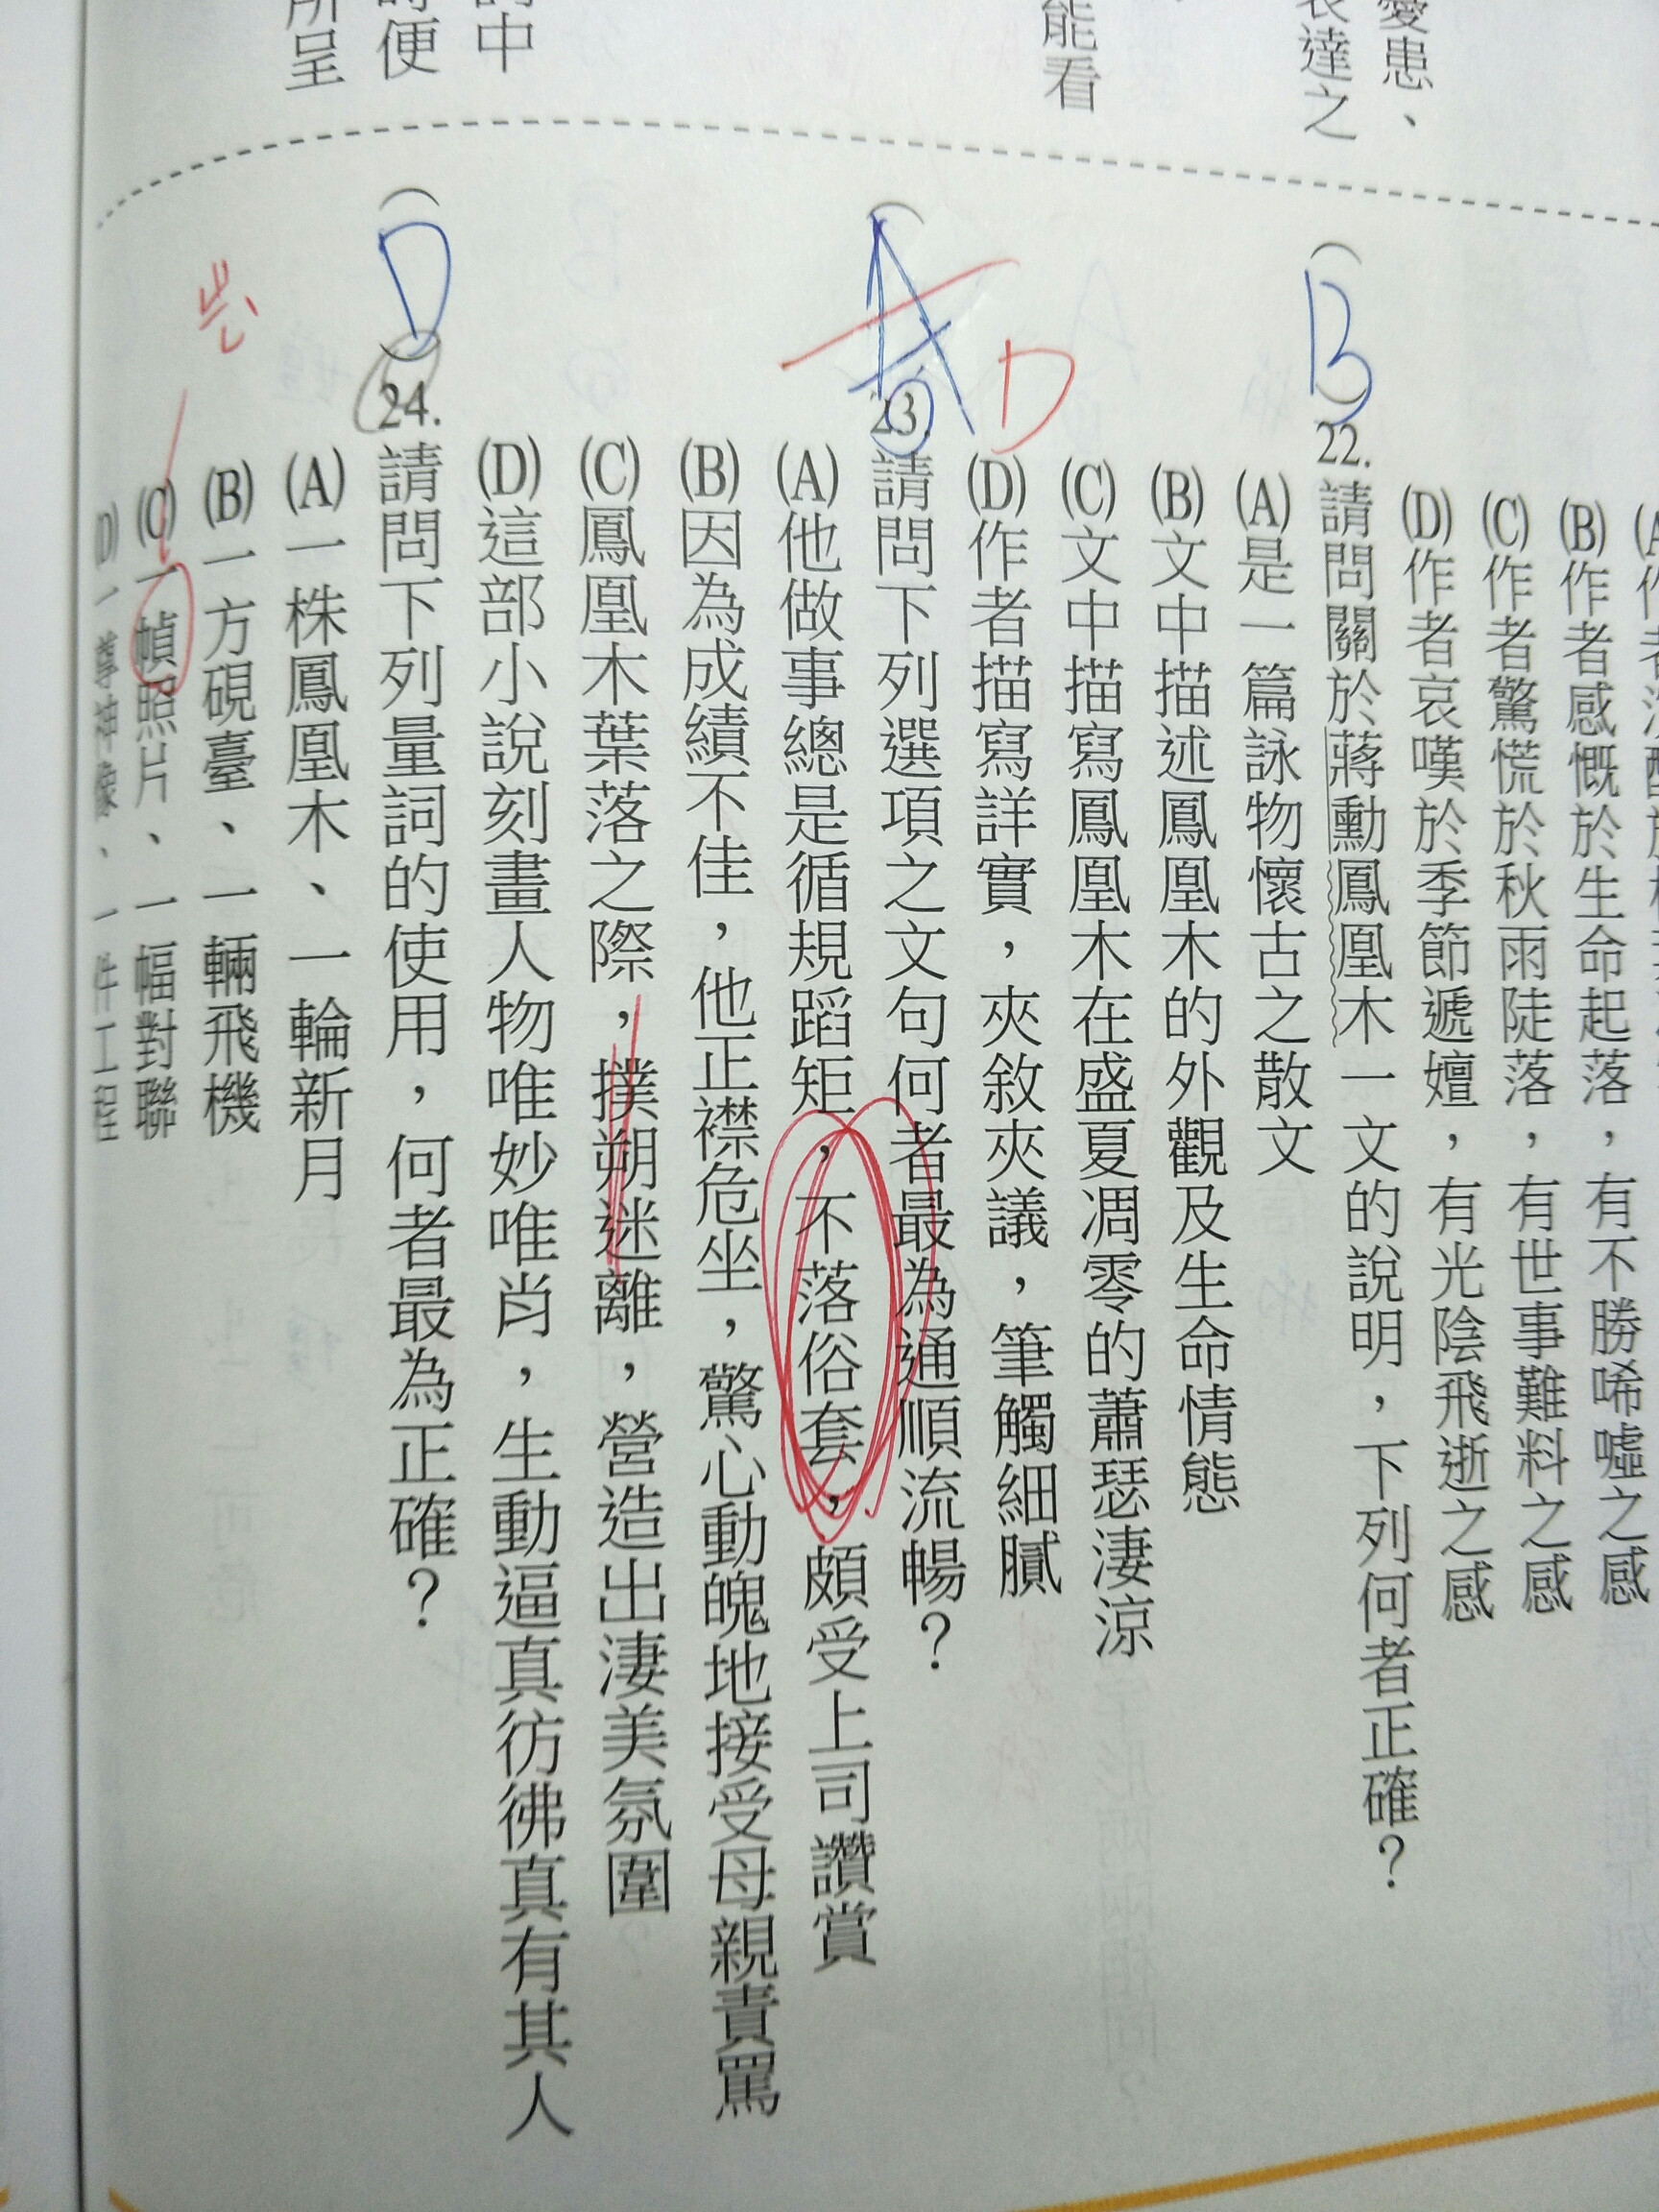 愛患、
表達之
能看
詞中
時便
所呈
(B)作者感慨於生命起落，有不勝唏噓之感
(C)作者驚慌於秋雨陡落，有世事難料之感
(D)作者哀嘆於季節遞嬗，有光陰飛逝之感
(B)22.請問關於蔣勳鳳凰木一文的說明，下列何者正確？
(A)是一篇詠物懷古之散文
(B)文中描述鳳凰木的外觀及生命情態
(C)文中描寫鳳凰木在盛夏凋零的蕭瑟淒涼
(D)作者描寫詳實，夾敘夾議，筆觸細膩
(A)23.請問下列選項之文句何者最為通順流暢？
D
(A)他做事總是循規蹈矩，不落俗套，頗受上司讚賞
(B)因為成績不佳，他正襟危坐，驚心動魄地接受母親責罵
(C)鳳凰木葉落之際，撲朔迷離，營造出淒美氛圍
(D)這部小說刻畫人物唯妙唯肖，生動逼真彷彿真有其人
(D)24.請問下列量詞的使用，何者最為正確？
(A)一株鳳凰木、一輪新月
(B)一方硯臺、一輛飛機
(C)一幀照片、一幅對聯
(D)一尊神像、一件工程